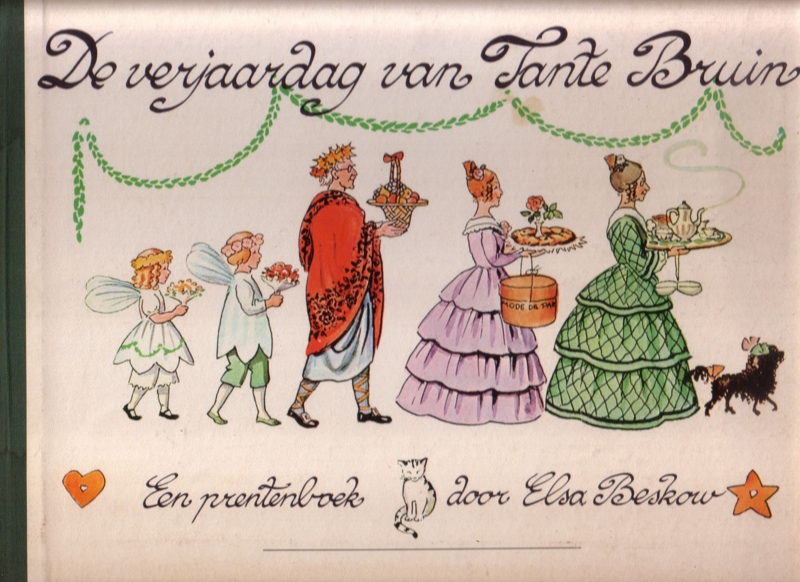 De verjaardag van Tante Bruin
MODE DE
Een prentenboek door Elsa Beskow